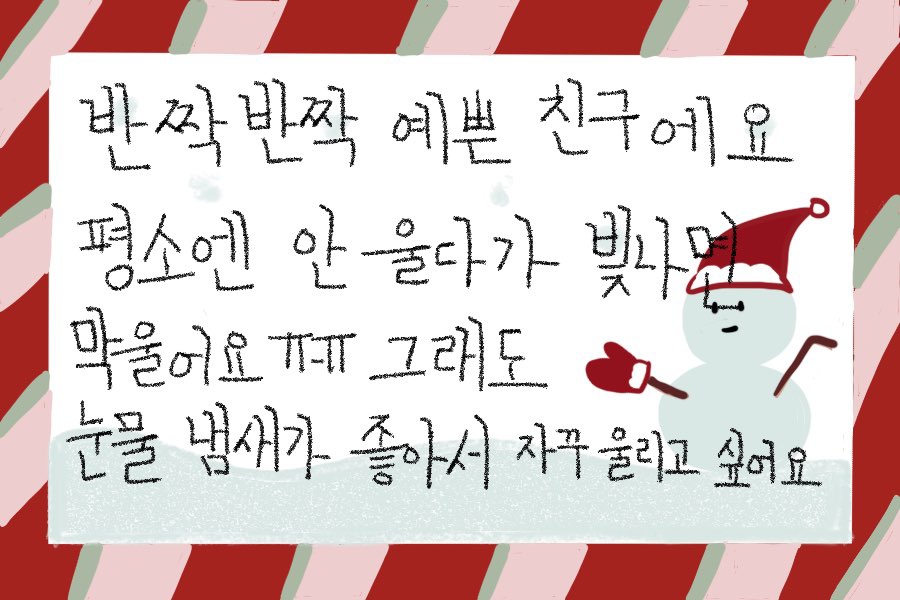 반짝반짝 예쁜 친구에요
평소엔 안 울다가 빛나면
막울어요 ㅠㅠ 그래도
눈물 냄새가 좋아서 자꾸 울리고 싶어요